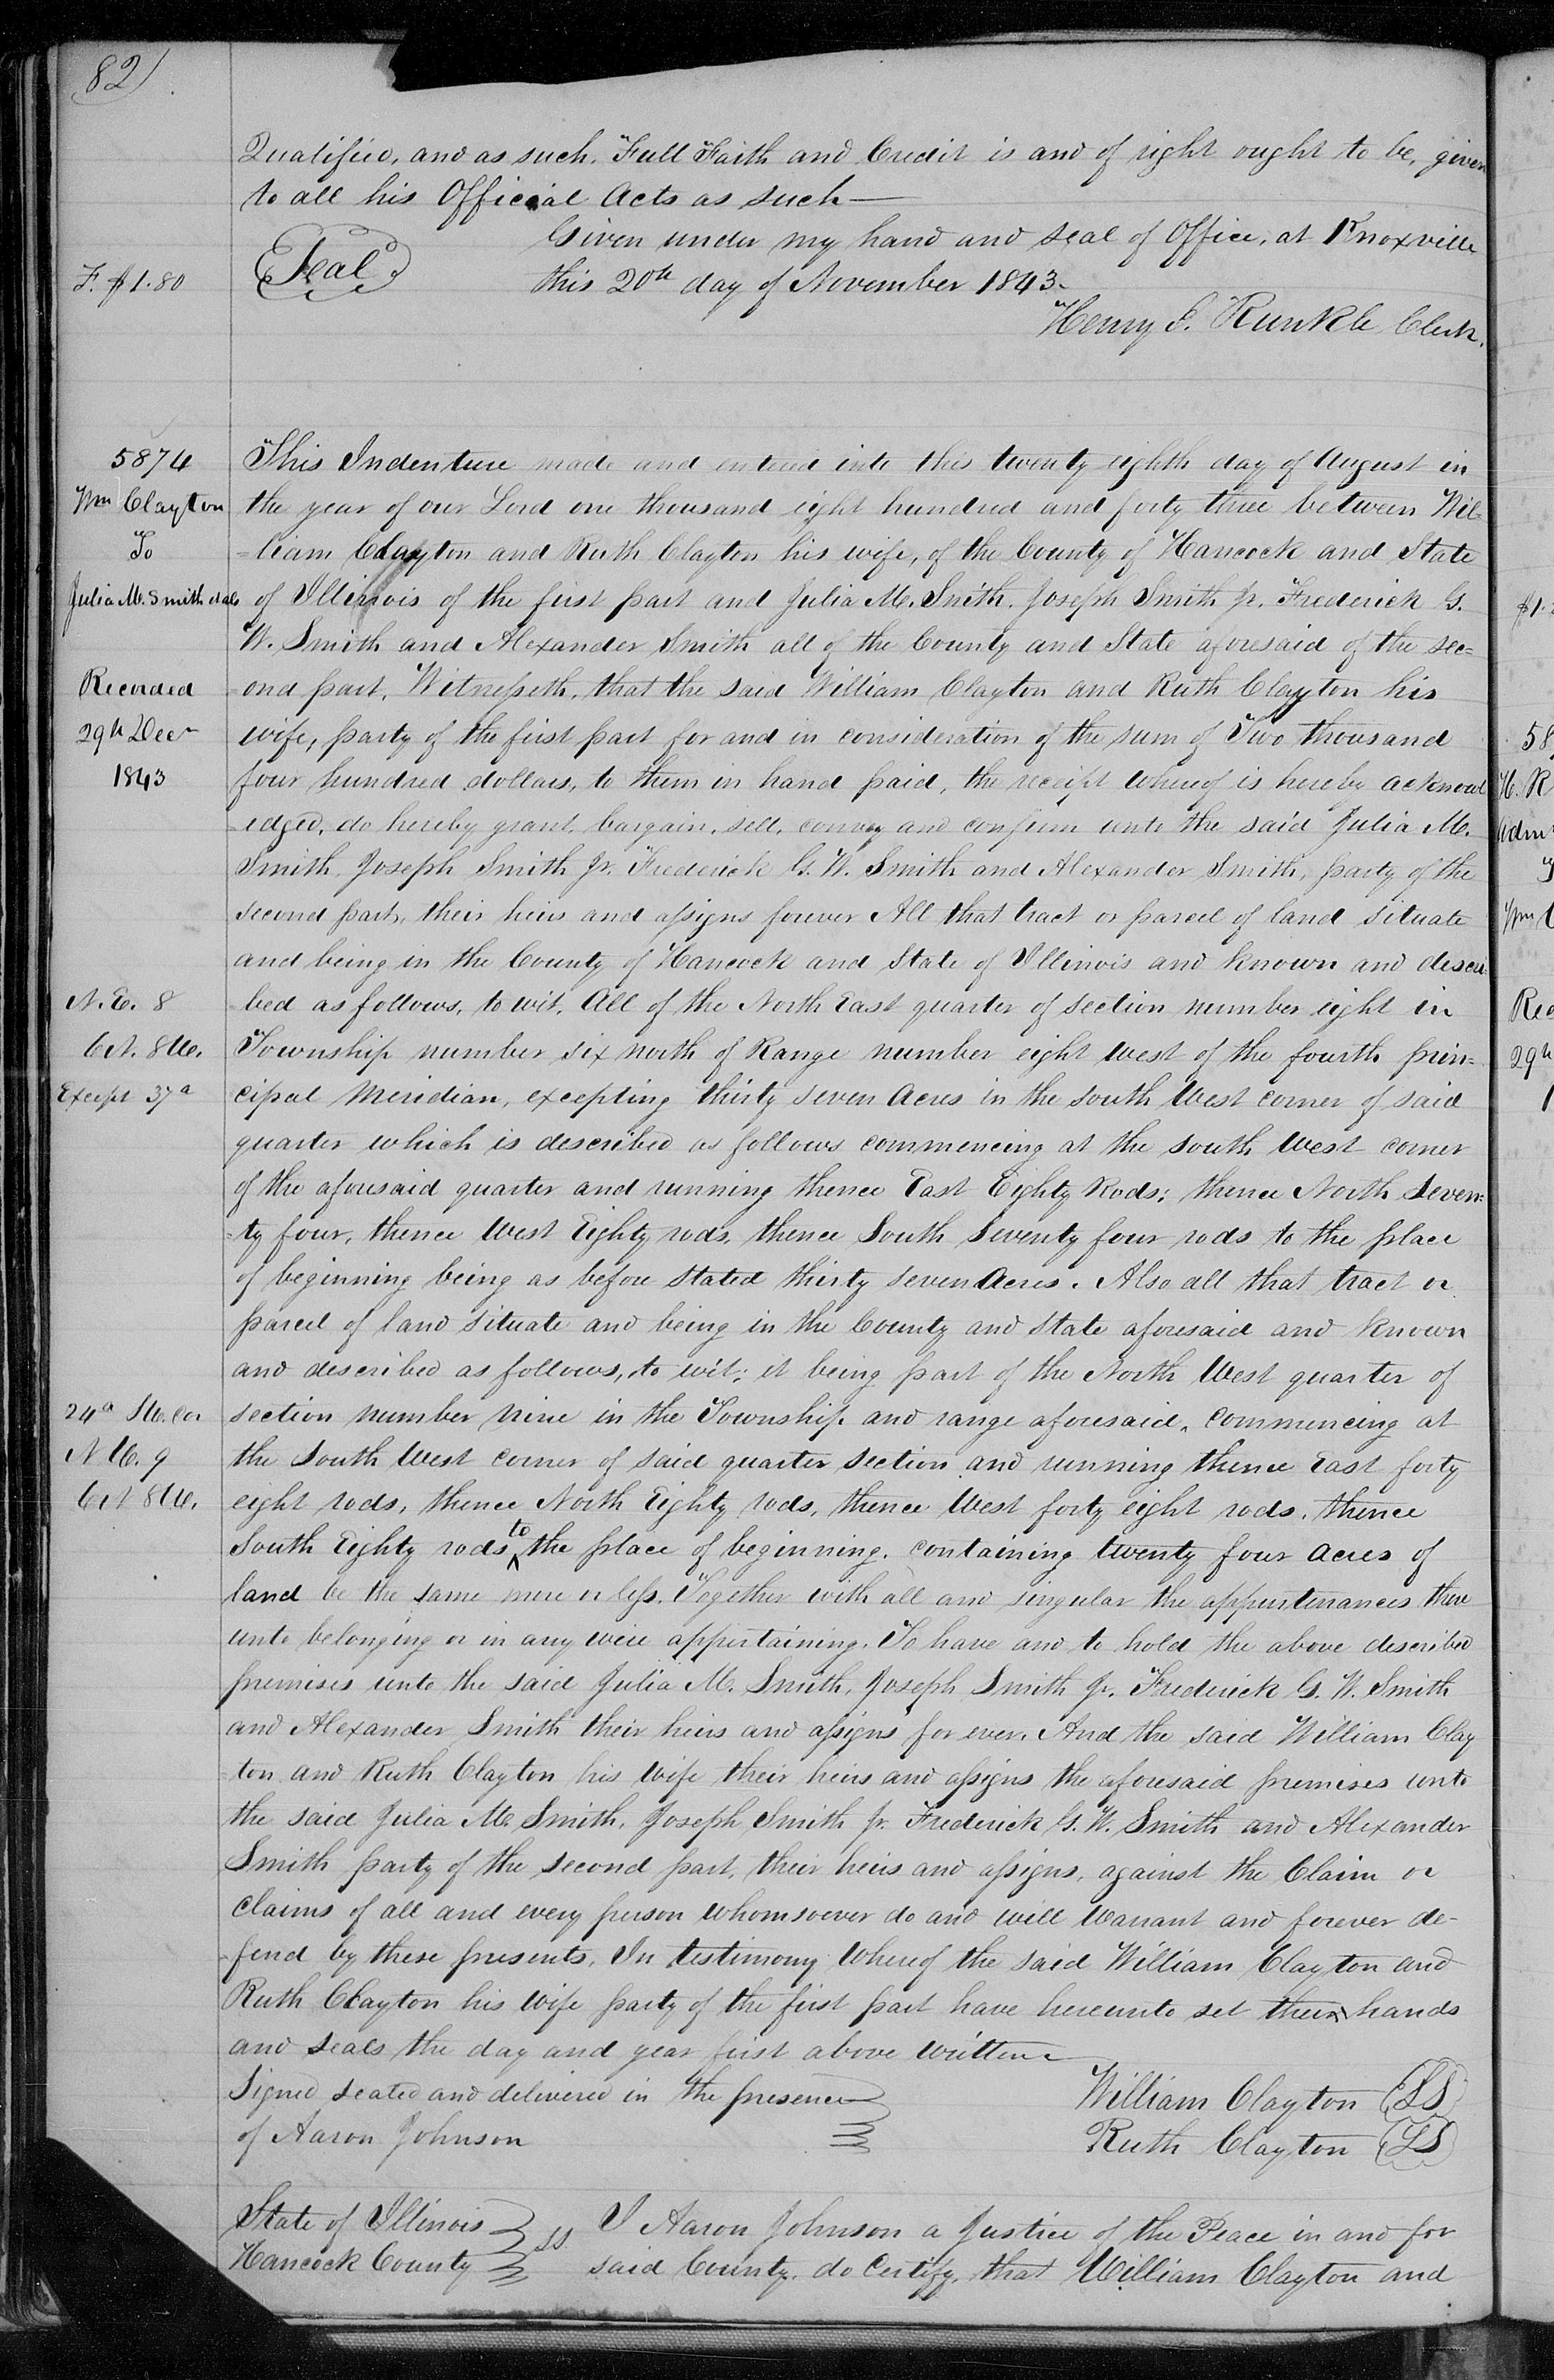 82)
Qualified, and as such, Full Faith and Credit is and of right ought to be, given
to all his Official Acts as such—
Given under my hand and seal of Office, at Knoxville
Seal
F. $1.80
this 20th day of November 1843.
Henry J. Runkle Clerk.
5874
Wm Clayton
To
Julia M. Smith et als
Recorded
29th Decr
1843
This Indenture made and entered into this twenty eighth day of August in
the year of our Lord one thousand eight hundred and forty three between Wil-
-liam Clayton and Ruth Clayton his wife, of the County of Hancock and State
of Illinois of the first part and Julia M. Smith, Joseph Smith jr. Frederick G.
W. Smith and Alexander Smith all of the County and State aforesaid of the sec=
-ond part, Witnesseth, that the said William Clayton and Ruth Clayton his
wife, party of the first part for and in consideration of the sum of Two thousand
four hundred dollars, to them in hand paid, the receipt whereof is hereby acknowl
-edged, do hereby grant, bargain, sell, convey and confirm unto the said Julia M.
Smith, Joseph Smith jr. Frederick G. W. Smith and Alexander Smith, party of the
second part, their heirs and assigns forever All that tract or parcel of land situate
and being in the County of Hancock and State of Illinois and known and descri-
N.E. 8
6N. 8W.
Except 37a
bed as follows, to wit, All of the North East quarter of section number eight in
Township number six north of Range number eight west of the fourth prin=
cipal Meridian, excepting thirty seven Acres in the south West corner of said
quarter which is described as follows commencing at the south West corner
of the aforesaid quarter and running thence East Eighty Rods; thence North Seven=
-ty four, thence West Eighty rods, thence South Seventy four rods to the place
of beginning being as before stated thirty seven Acres. Also all that tract or
parcel of land situate and being in the County and State aforesaid and known
and described as follows, to wit; it being part of the North West quarter of
24a SW. cor
N W. 9
6N 8W.
section number nine in the Township and range aforesaid, commencing at
the South West corner of said quarter section and running thence East forty
eight rods, thence North Eighty rods, thence West forty eight rods, thence
South Eighty rods to the place of beginning. containing twenty four acres of
land be the same more or less. Together with all and singular the appurtenances there
unto belonging or in any wise appertaining. To have and to hold the above described
premises unto the said Julia M. Smith, Joseph Smith Jr. Frederick G. W. Smith
and Alexander Smith their heirs and assigns for ever. And the said William Clay
-ton and Ruth Clayton his wife their heirs and assigns the aforesaid premises unto
the said Julia M. Smith, Joseph Smith jr. Frederick G. W. Smith and Alexander
Smith party of the second part, their heirs and assigns, against the Claim or
Claims of all and every person whomsoever do and will Warrant and forever de-
-fend by these presents, In testimony whereof the said William Clayton and
Ruth Clayton his wife party of the first part have hereunto set their hands
and seals the day and year first above written
Signed sealed and delivered in the presence
of Aaron Johnson
William Clayton (LS)
Ruth Clayton (LS)
State of Illinois
Hancock County
ss
I Aaron Johnson a Justice of the Peace in and for
said County, do Certify, that William Clayton and
$1.
58
H. R
Adm
Wm C
Rec
29th
1